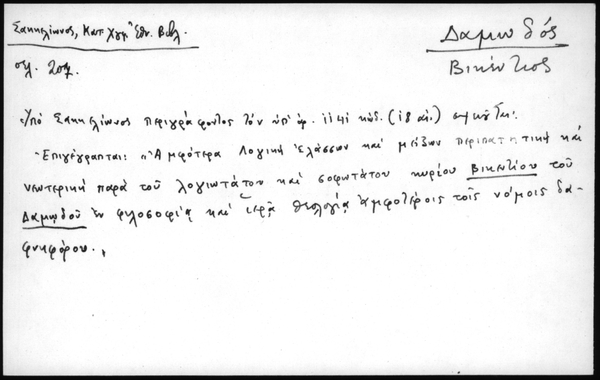 Σακκελίωνος, Κατ. Χγρ. Ἐθν. Βιβλ.
σελ.
Δαμωδός
Βικέντιος
Ὑπὸ Σακκελίωνος περιγράφοντος τὸν ὑπ' ἀρ. 1141 κώδ. (18 αἰ.)
Ἐπιγέγραπται: "Ἀμφότερα Λογικὴ ἐλάσσων καὶ μείζων περιπατητικὴ καὶ
νεωτερικὴ παρὰ τοῦ λογιωτάτου καὶ σοφωτάτου κυρίου Βικεντίου τοῦ
Δαμῳδοῦ ἐν φιλοσοφίᾳ καὶ ἱερᾷ θεολογίᾳ ἀμφοτέροις τοῖς νόμοις δα-
φνηφόρου.